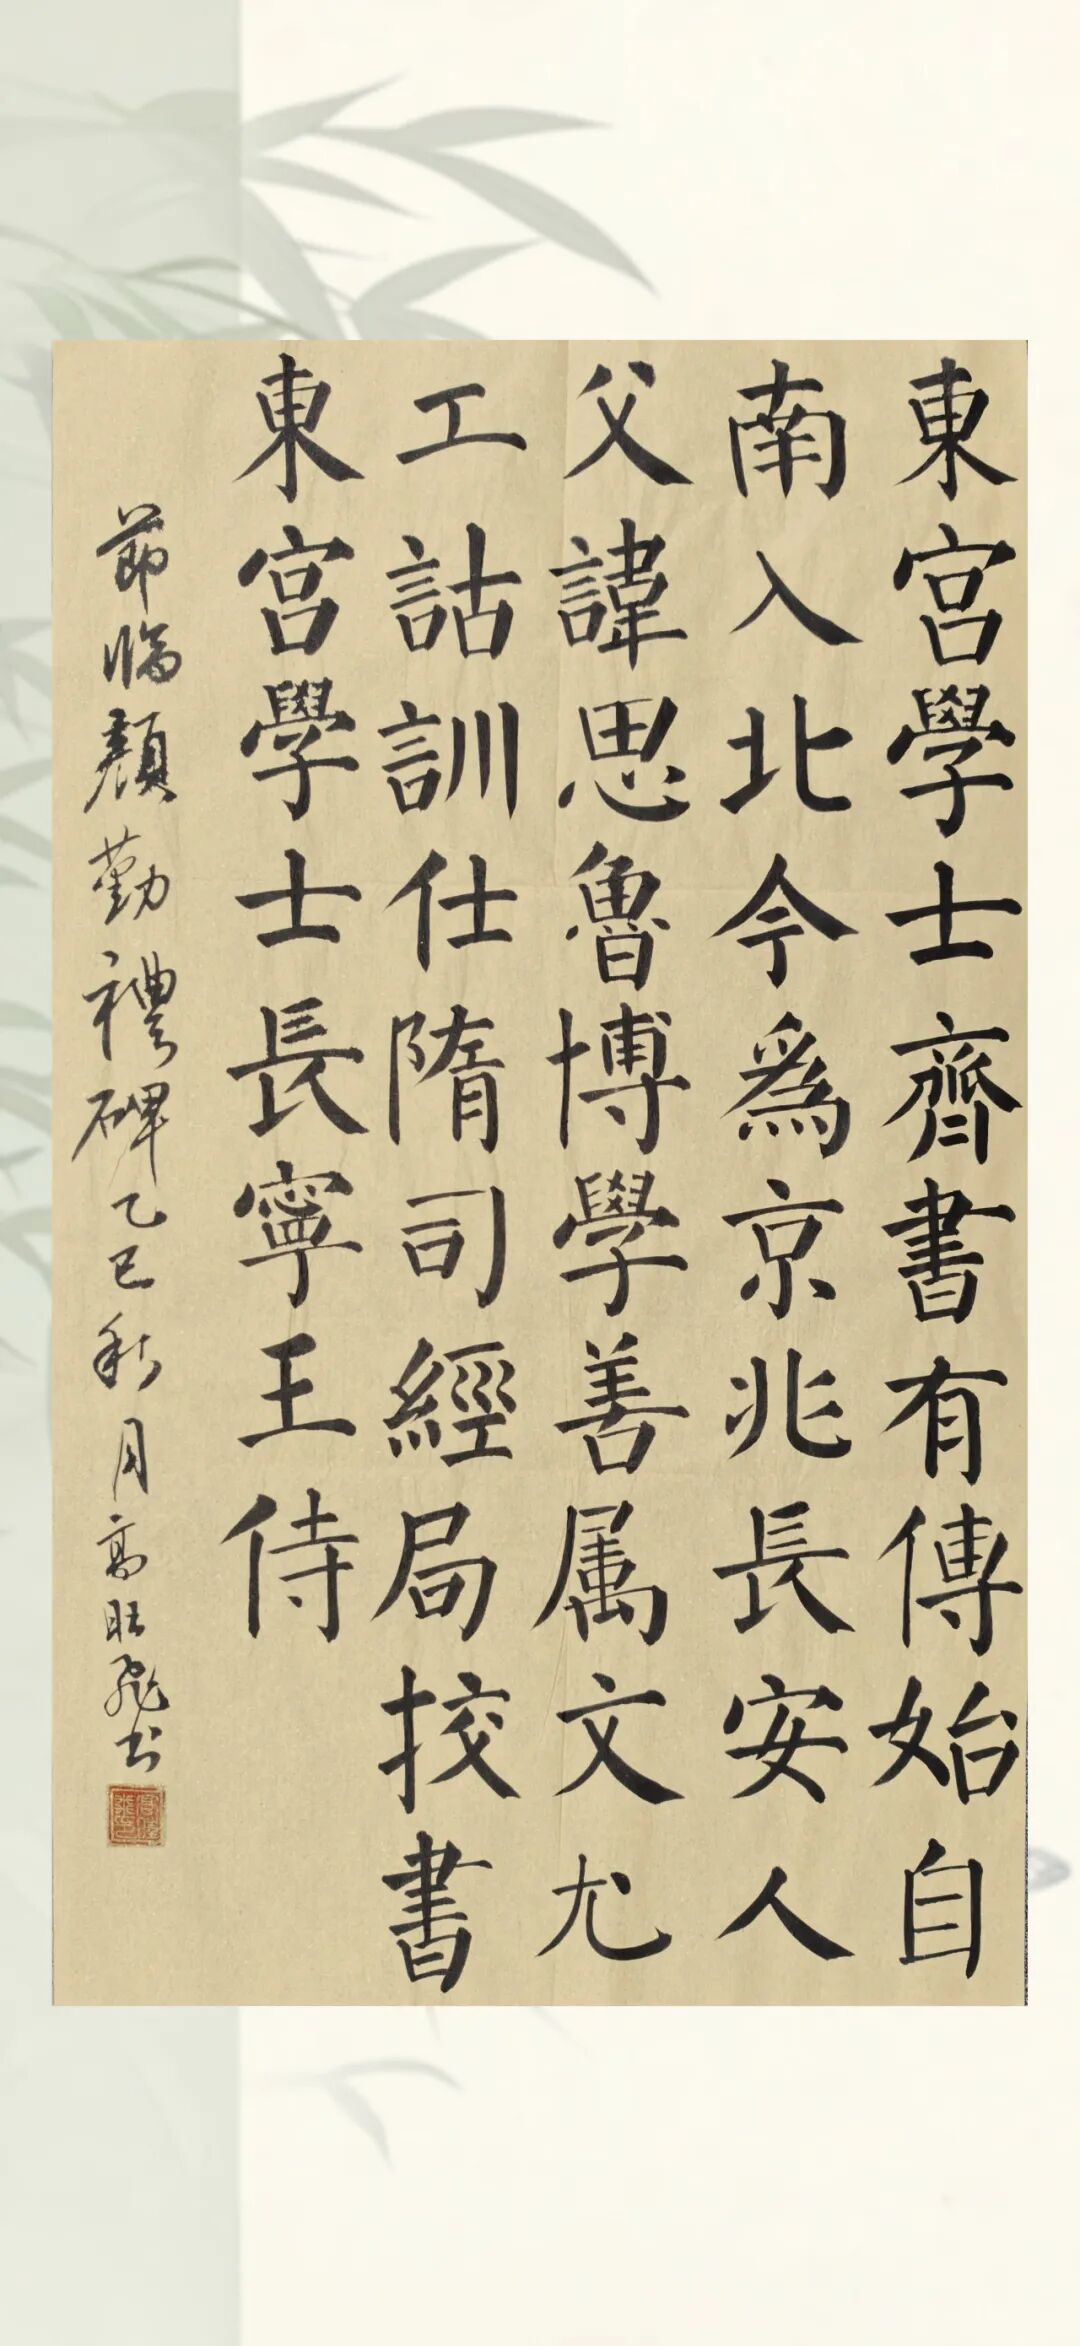 東宮學士齊書有傳始自
南入北今為京兆長安人
父諱思魯博學善属文尤
工詁訓仕隋司經局挍書
東宮學士長寧王侍
節臨顏勤禮碑乙巳秋月高旺飛书